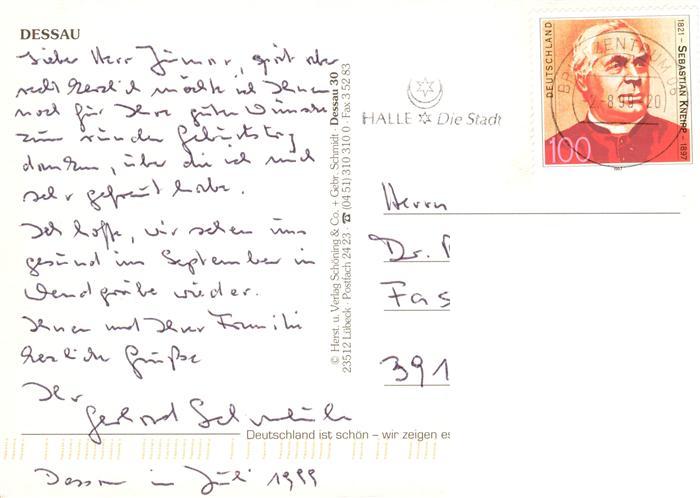 DESSAU
Lieber Herr, spät aber
recht herzlich möchte ich Ihnen
noch für Ihre guten Wünsche
zum runden Geburtstag
danken, über die ich mich
sehr gefreut habe.
Ich hoffe, wir sehen uns
gesund im September in
Wendgräbe wieder.
Ihnen und Ihrer Familie
herzliche Grüße
Ihr
Gerhard
Dessau im Juli 1999
© Herst. u. Verlag Schöning & Co. + Gebr. Schmidt · Dessau 30
23512 Lübeck · Postfach 24 23 · ☎ (04 51) 310 310 0 · Fax 3 52 83
HALLE ✡ Die Stadt
BRIEFZENTRUM 06
DEUTSCHLAND
1821 – SEBASTIAN KNEIPP – 1897
100
1997
Herrn
Dr.
Fas
391
Deutschland ist schön – wir zeigen es